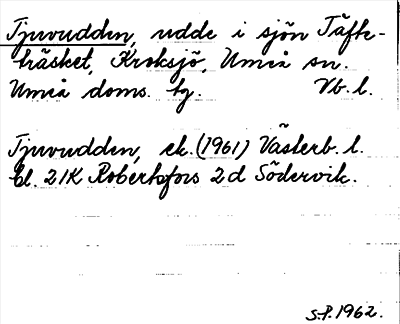 Tjuvudden, udde i sjön Täfte-
träsket, Kroksjö, Umeå sn.
Umeå doms. tg. Vb. l.
Tjuvudden, ek. (1961) Västerb. l.
bl. 21K Robertsfors 2d Södervik.
S.P. 1962.